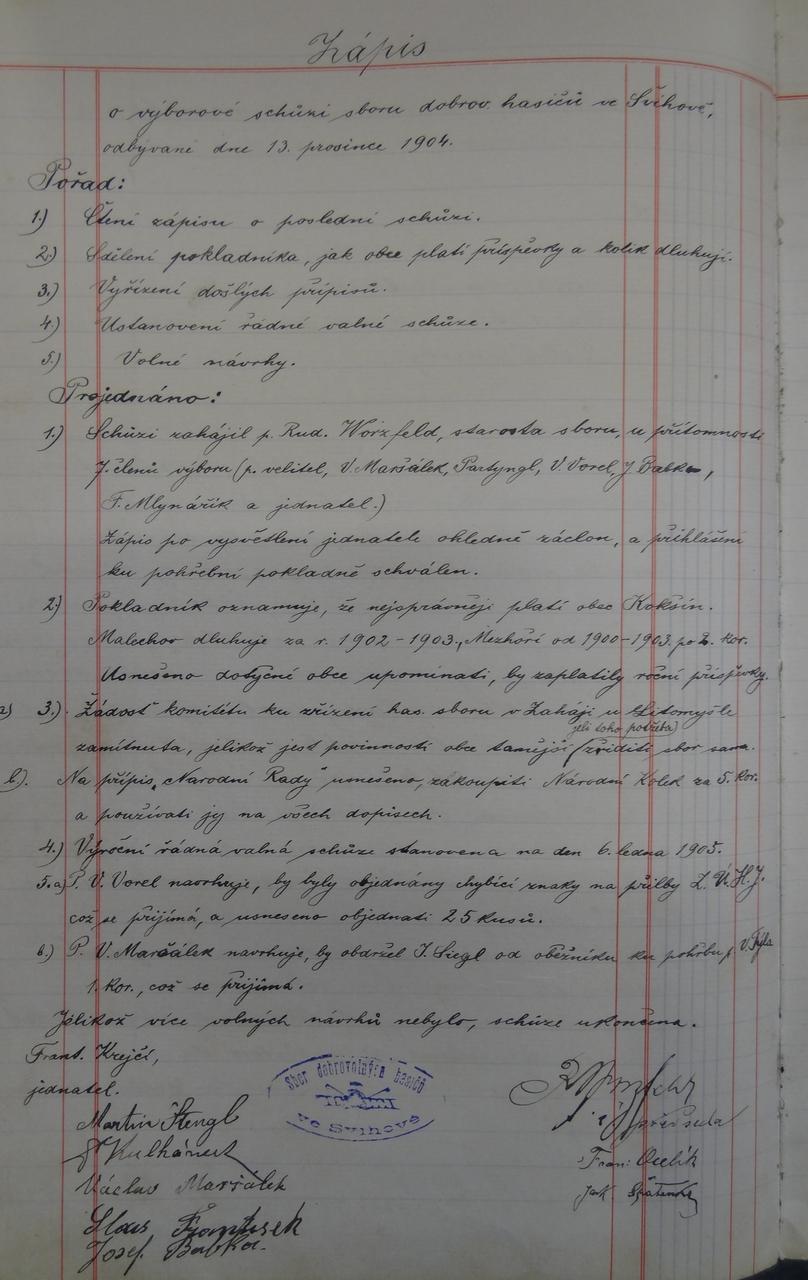 Zápis
o výborové schůzi sboru dobrov. hasičů ve Švihově,
odbývané dne 13. prosince 1904.
Pořad:
1.) Čtení zápisu o poslední schůzi.
2.) Sdělení pokladníka, jak obce platí příspěvky a kolik dluhují.
3.) Vyřízení došlých přípisů.
4.) Ustanovení řádné valné schůze.
5.) Volné návrhy.
Projednáno:
1.) Schůzi zahájil p. Rud. Worzfeld, starosta sboru, u přítomnosti
7. členů výboru (p. velitel, V. Maršálek, Partyngl, V. Vorel, J. Babka,
F. Mlynářík a jednatel.)
Zápis po vysvětlení jednatele ohledně záclon, a přihlášení
ku pohřební pokladně schválen.
2.) Pokladník oznamuje, že nejsprávněji platí obec Kokšín.
Malechov dluhuje za r. 1902-1903, Mezhoří od 1900-1903 po 2. kor.
Usnešeno dotyčné obce upomínati, by zaplatily roční příspěvky.
a) 3.) Žádost komitétu ku zřízení has. sboru v Zaháji u Litomyšle
jeli toho potřeba)
zamítnuta, jelikož jest povinností obce tamější (zříditi sbor sama.
b). Na přípis „Narodní Rady" usnešeno, zákoupiti Národní Kolek za 5. kor.
a používati jej na všech dopisech.
4.) Výroční řádná valná schůze stanovena na den 6. ledna 1905.
5. a) P. V. Vorel navrhuje, by byly objednány chybící znaky na přilby Z. Ú. H. J.
což se přijímá, a usneseno objednati 25 kusů.
b.) P. V. Maršálek navrhuje, by obdržel J. Siegl od oběžníku ku pohřbu p. V. Týla
1. kor., což se přijímá.
Jelikož více volných návrhů nebylo, schůze ukončena.
Frant. Krejčí,
jednatel.
Sbor dobrovolných hasičů
ve Švihově
předseda
Martin Štengl
Kulhánek
Fran. Oulík
Václav Maršálek
František
Josef Babka.